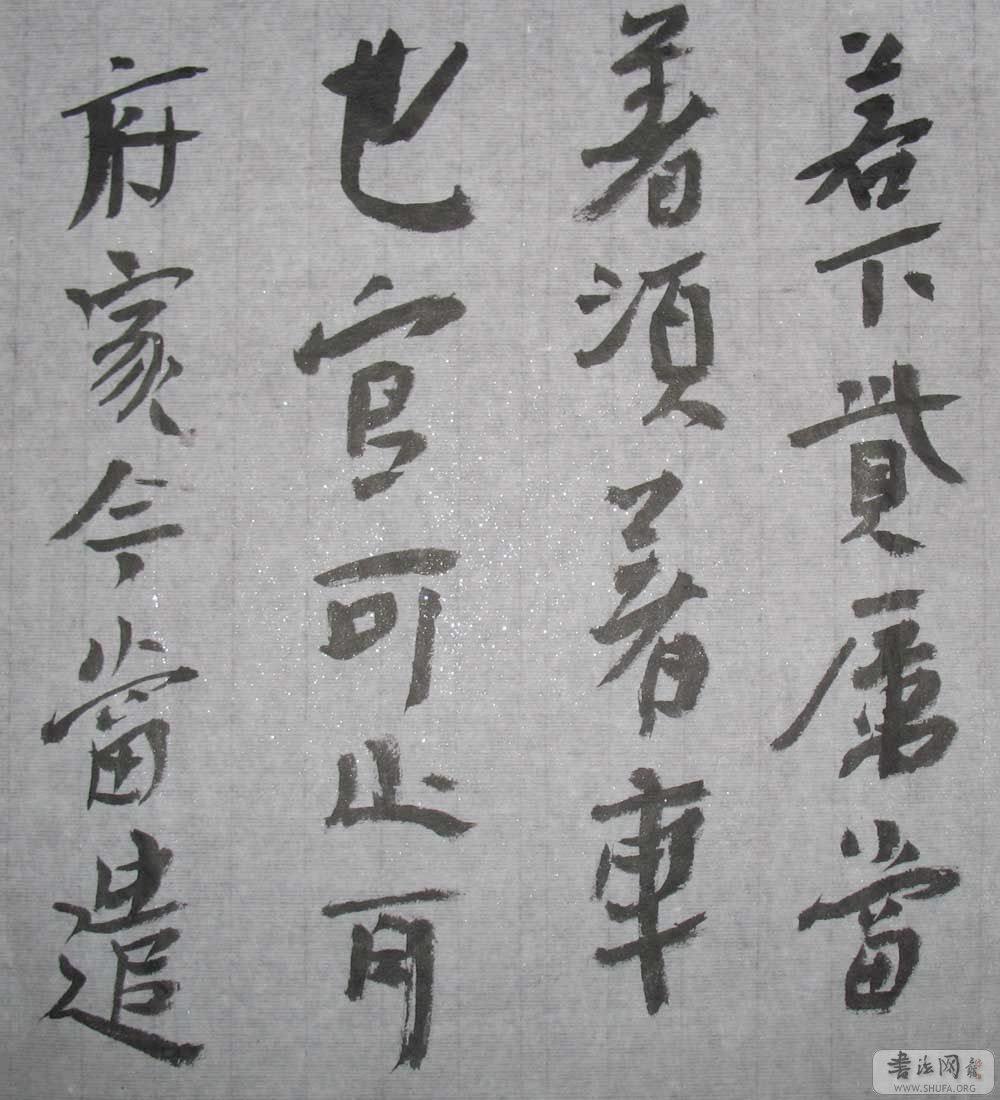 若下貲當
着須着車
也官可止可
府家今當遣
書法网
WWW.SHUFA.ORG